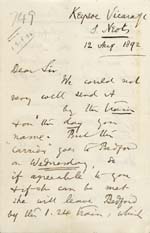 749
Keysoe Vicarage
S. Neots
12 Aug 1892
Dear Sir
We could not
very well send it
by the train
on the day you
name. But the
"Carrier" goes to Bedford
on Wednesday, &
if agreeable to you
& if it can be met
she will leave Bedford
by the 1.24 train, which